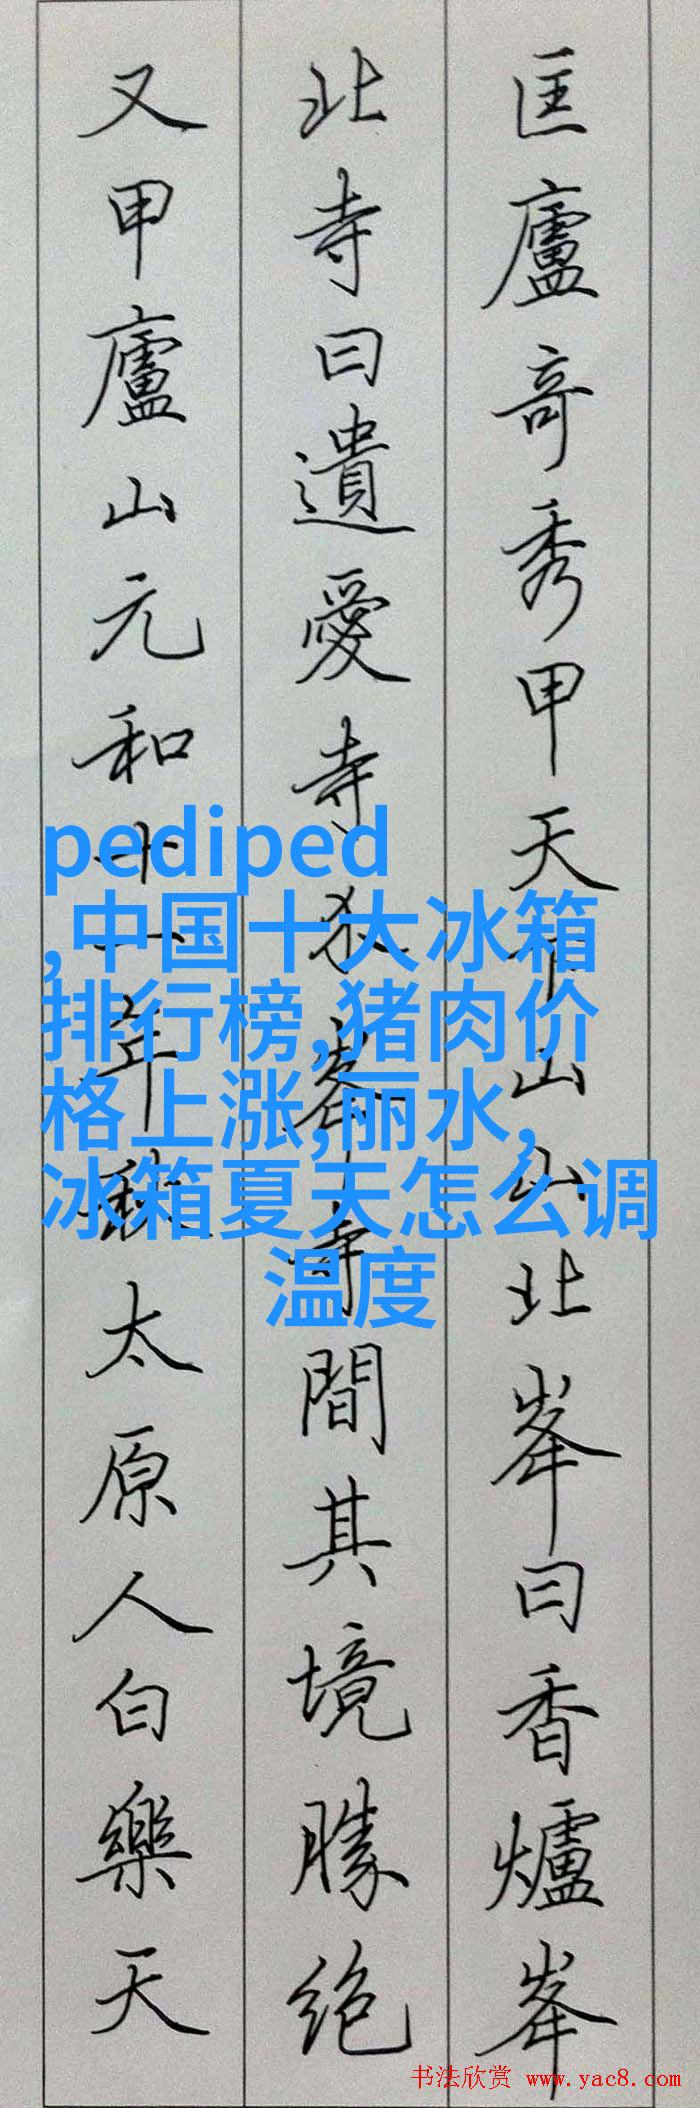 匡廬竒秀甲天下山山北峯曰香爐峯
北寺曰遺愛寺峯寺間其境勝绝
又甲廬山元和十一年秋太原人白樂天
pediped
,中国十大冰箱
排行榜,猪肉价
格上涨,丽水,
冰箱夏天怎么调
温度
书法欣赏 www.yac8.com